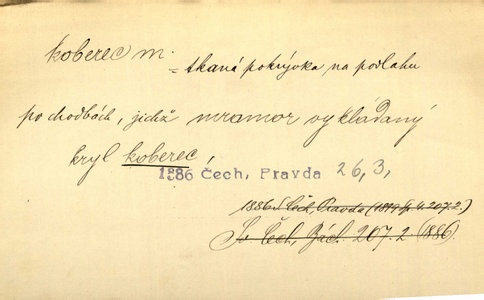 koberec m.
= tkaná pokrývka na podlahu
po chodbách, jichž mramor vykládaný
kryl koberec,
1886 Čech, Pravda 26,3,
1886 S. Čech, Pravda (1899 Sp. 4. 207. 2.)
Sv. Čech, Pách. 207. 2. (1886).